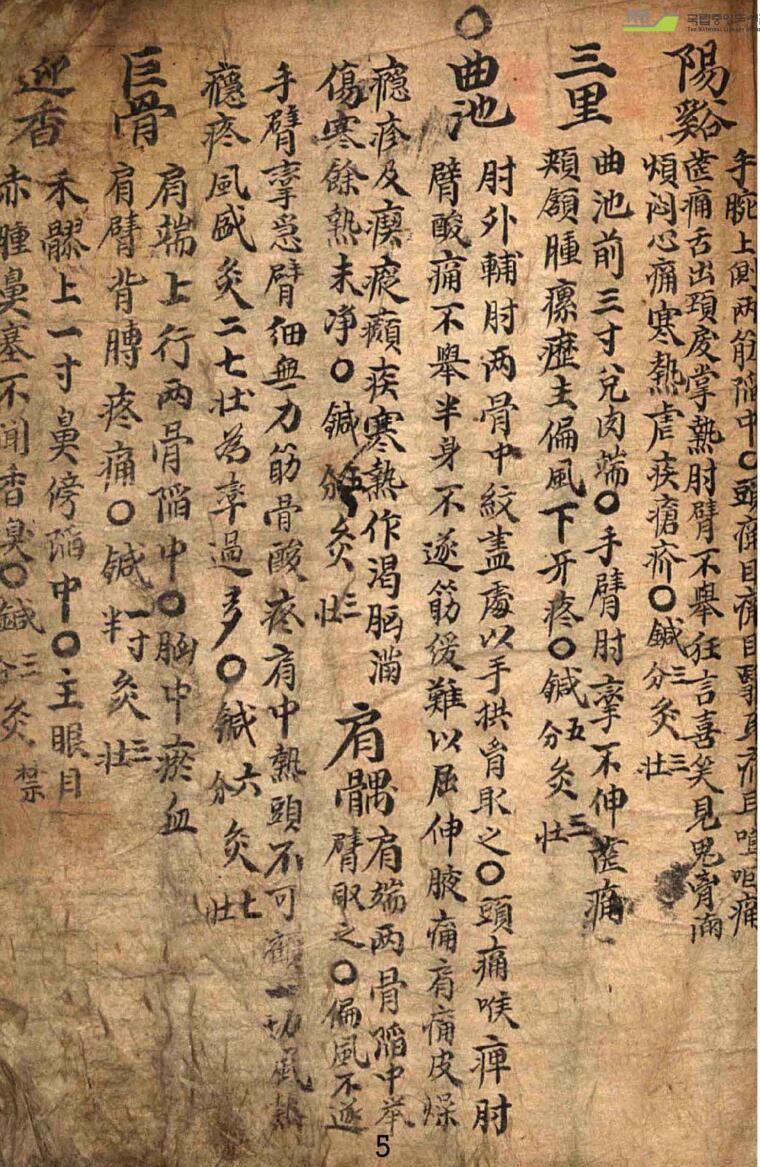 陽谿
手腕上側兩筋陷中〇頭痛目痛目翳耳痛耳咽痛
齒痛舌出頸戾掌熱肘臂不舉狂言喜笑見鬼胷滿
煩悶心痛寒熱虐疾瘡疥〇鍼三分灸三壯
三里
曲池前三寸兌肉端〇手臂肘攣不伸齒痛
頰頷腫瘰癧主偏風下牙疼〇鍼五分灸三壯
〇曲池
肘外輔肘两骨中紋盖處以手拱胷取之〇頭痛喉痺肘
臂酸痛不舉半身不遂筋緩難以屈伸腋痛肩痛皮燥
癮疹及瘈瘲癲疾寒熱作渴胸滿
傷寒餘熱未净〇鍼五分灸三壯
肩髃
肩端两骨陷中举
臂取之〇偏風不遂
手臂攣急臂細無力筋骨酸疼肩中熱頭不可顧一切風熱
癮疹風盛灸二七壯為率過多〇鍼六分灸七壯
巨骨
肩端上行两骨陷中〇胸中瘀血
肩臂背膊疼痛〇鍼一寸半灸三壯
迎香
禾髎上一寸鼻傍陷中〇主眼目
赤腫鼻塞不聞香臭〇鍼三分灸禁
5
국립중앙도서관